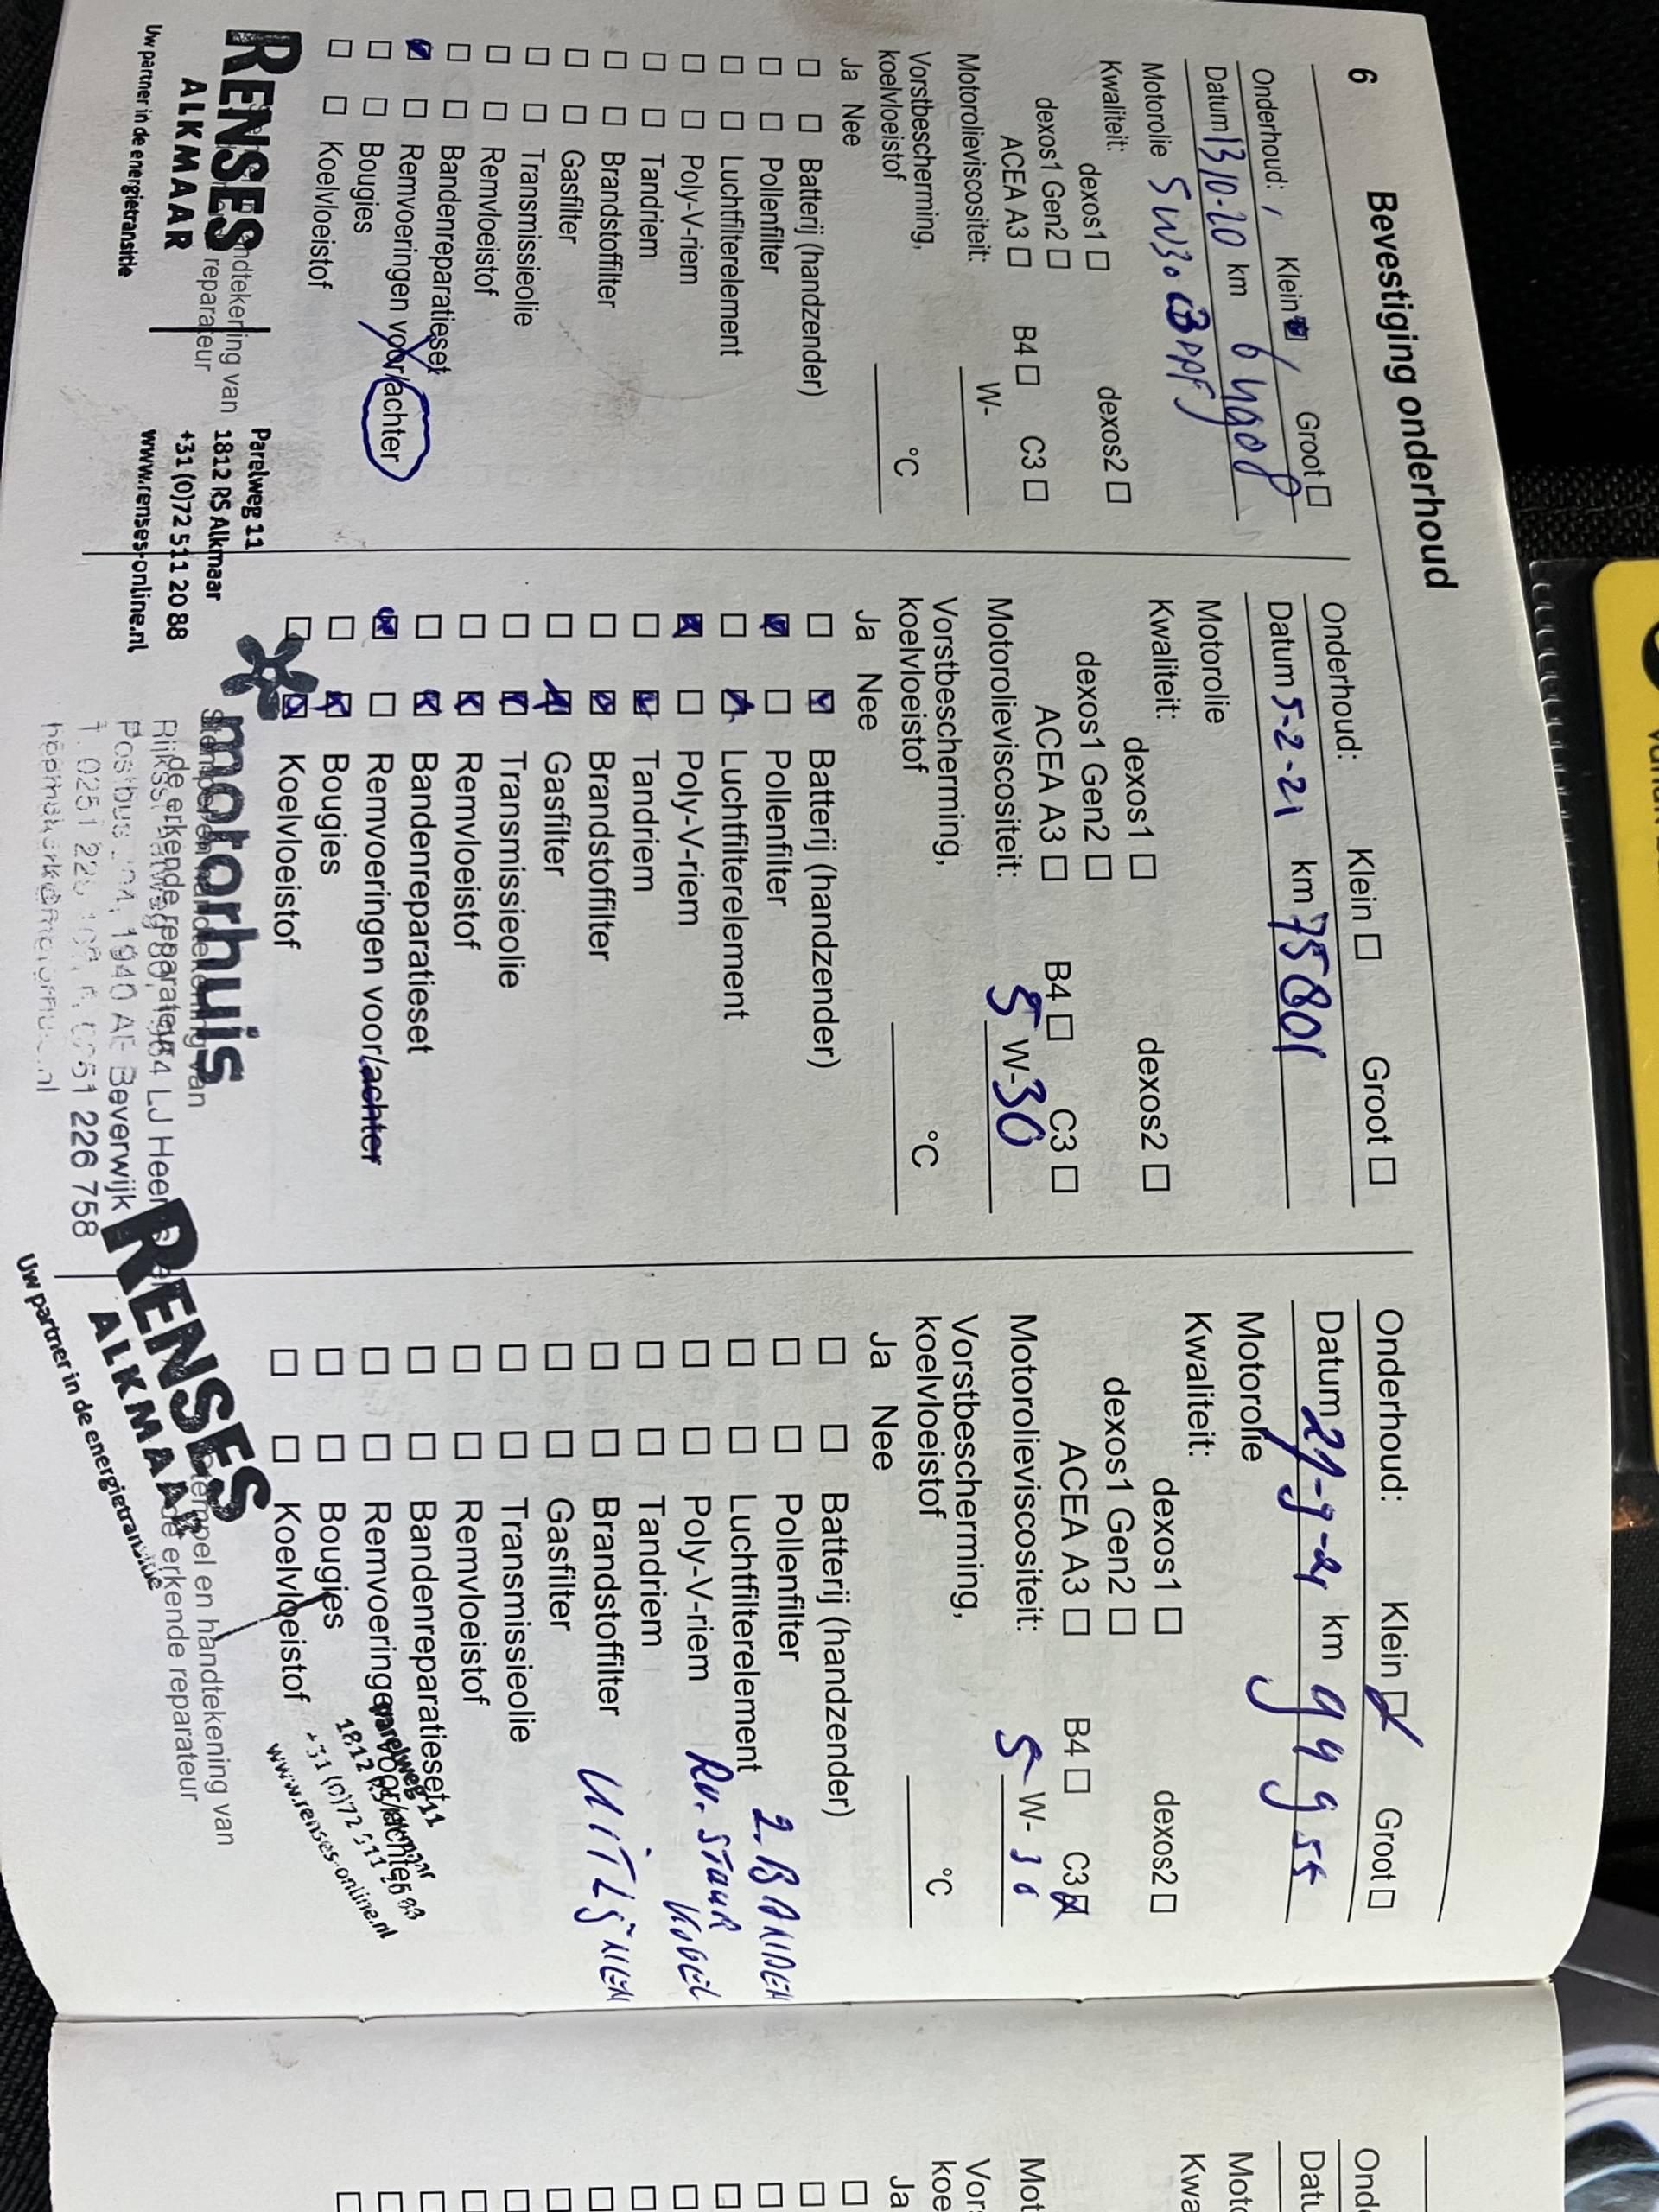 6 Bevestiging onderhoud
Onderhoud: Klein Groot
Datum 13-10-20 km
Motorolie 5W30 C3 DPF
Kwaliteit: dexos1 dexos2
dexos1 Gen2
ACEA A3 B4 C3
Motorolieviscositeit: W-
Vorstbescherming,
koelvloeistof °C
Ja Nee
Batterij (handzender)
Pollenfilter
Luchtfilterelement
Poly-V-riem
Tandriem
Brandstoffilter
Gasfilter
Transmissieolie
Remvloeistof
Bandenreparatieset
Remvoeringen voor/achter
Bougies
Koelvloeistof
handtekening van
reparateur
RENSES
ALKMAAR
Uw partner in de energietransitie
Parelweg 11
1812 RS Alkmaar
+31 (0)72 511 20 88
www.renses-online.nl
Onderhoud: Klein Groot
Datum 5-2-21 km 75801
Motorolie
Kwaliteit: dexos1 dexos2
dexos1 Gen2
ACEA A3 B4 C3
Motorolieviscositeit: 5 W-30
Vorstbescherming,
koelvloeistof °C
Ja Nee
Batterij (handzender)
Pollenfilter
Luchtfilterelement
Poly-V-riem
Tandriem
Brandstoffilter
Gasfilter
Transmissieolie
Remvloeistof
Bandenreparatieset
Remvoeringen voor/achter
Bougies
Koelvloeistof
motorhuis
de erkende reparateur
1940 AE Beverwijk
226 758
Onderhoud: Klein Groot
Datum km 99955
Motorolie
Kwaliteit: dexos1 dexos2
dexos1 Gen2
ACEA A3 B4 C3
Motorolieviscositeit: 5 W-30
Vorstbescherming,
koelvloeistof °C
Ja Nee
Batterij (handzender)
Pollenfilter 2. BANDEN
Luchtfilterelement
Poly-V-riem RV. STUUR KOGEL
Tandriem
Brandstoffilter UITLIJNEN
Gasfilter
Transmissieolie
Remvloeistof
Bandenreparatieset
Remvoeringen voor/achter
Bougies
Koelvloeistof
Stempel en handtekening van
de erkende reparateur
RENSES
ALKMAAR
Uw partner in de energietransitie
Parelweg 11
www.renses-online.nl
Ond
Datu
Moto
Kwa
Mot
Vor
koe
Ja